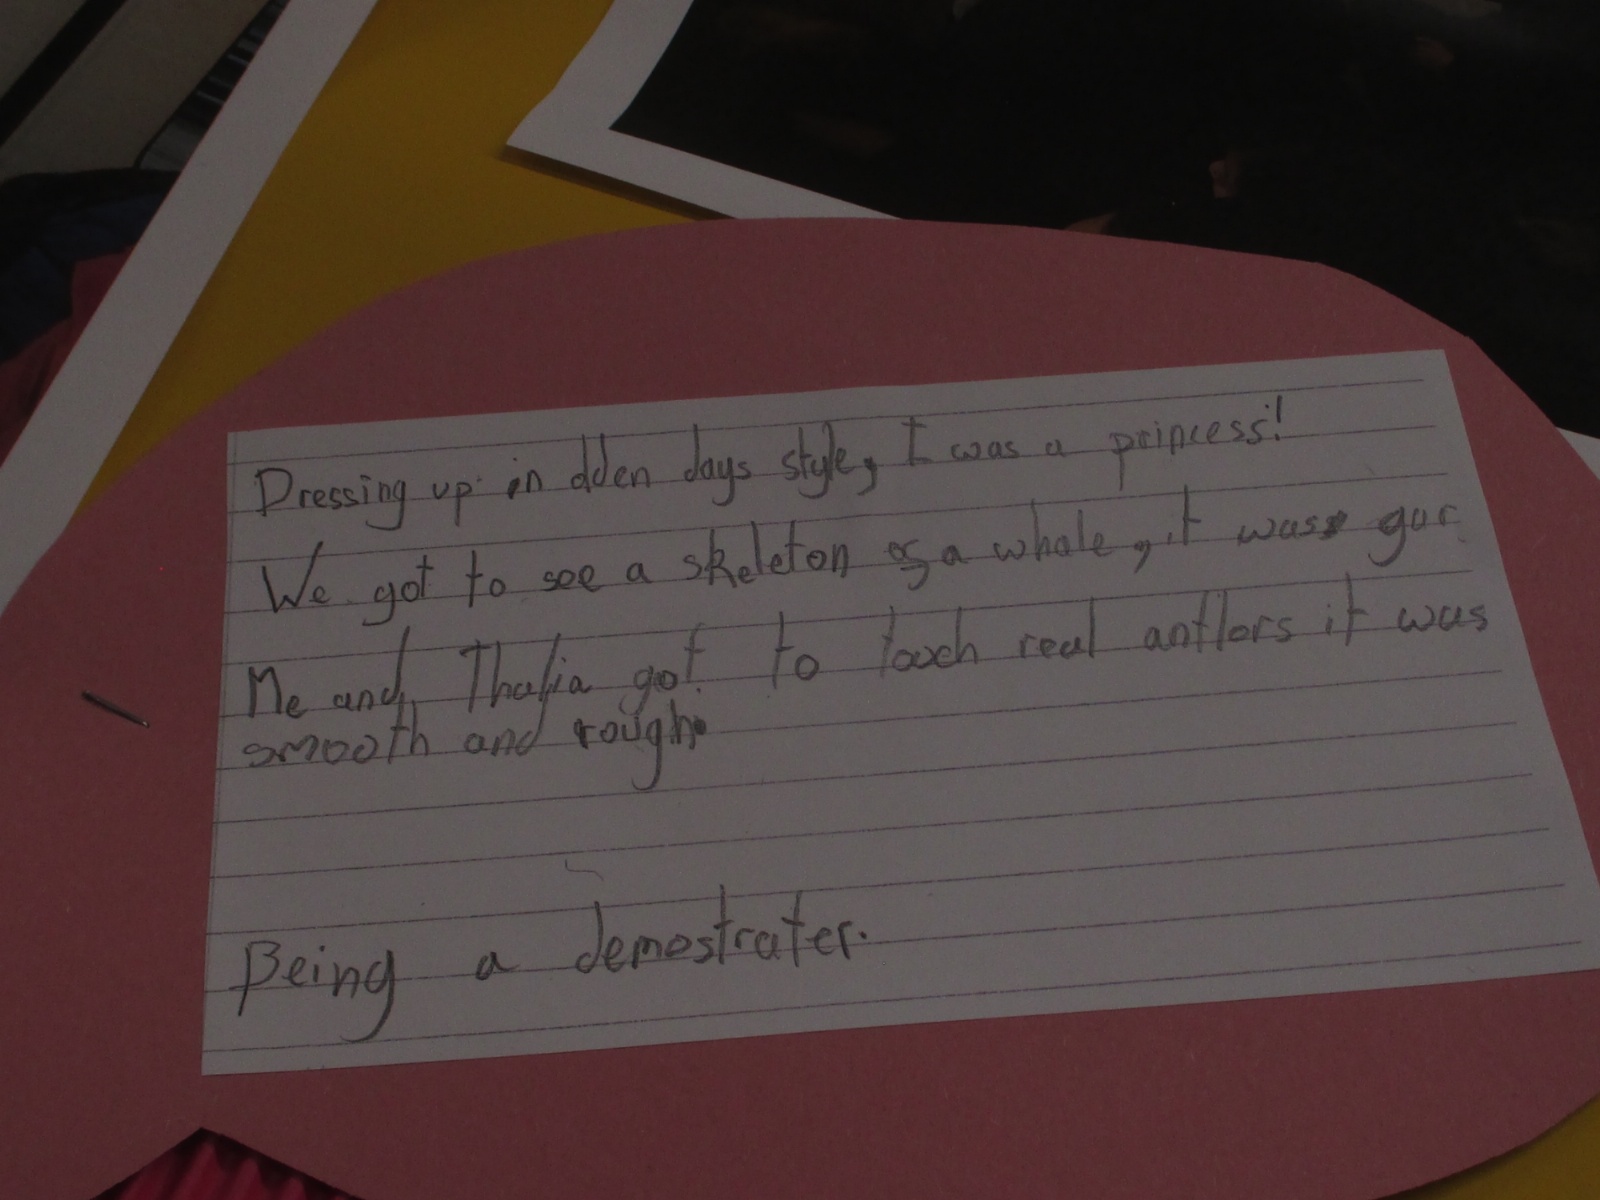 Dressing up in olden days style, I was a princess!
We got to see a skeleton of a whale, it was
Me and Thalia got to touch real antlers it was
smooth and rough.
Being a demostrater.